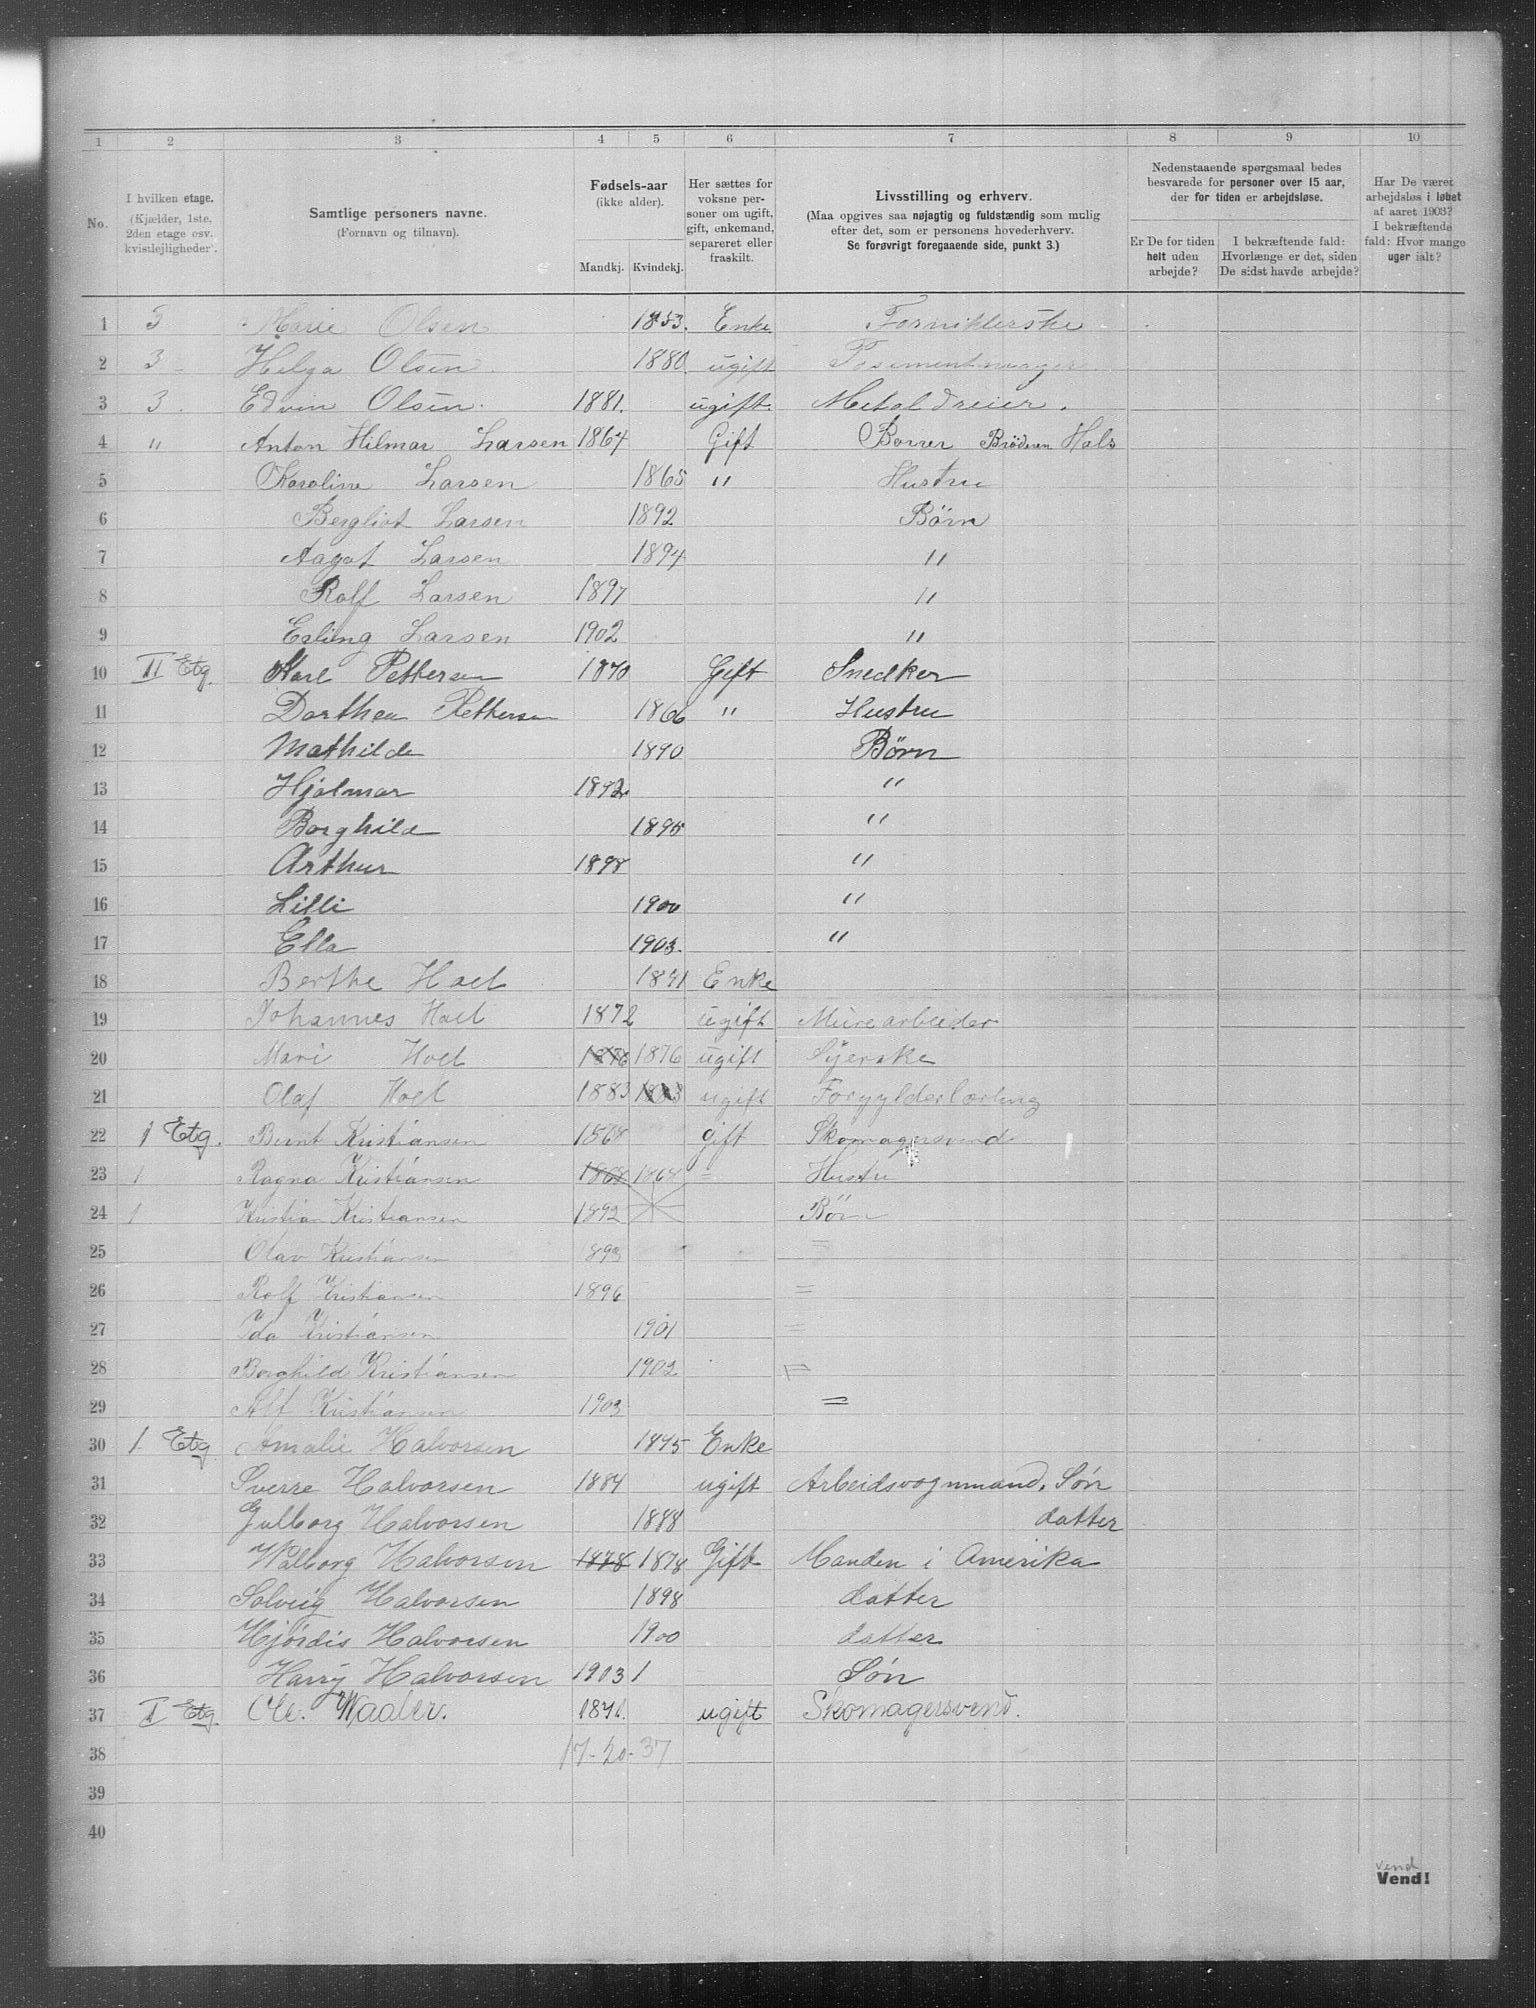 1 2 3 4 5 6 7 8 9 10
No.
I hvilken etage. (Kjælder, 1ste, 2den etage osv. kvistlejligheder).
Samtlige personers navne. (Fornavn og tilnavn).
Fødsels-aar (ikke alder). Mandkj. Kvindekj.
Her sættes for voksne personer om ugift, gift, enkemand, separeret eller fraskilt.
Livsstilling og erhverv. (Maa opgives saa nøjagtig og fuldstændig som mulig efter det, som er personens hovederhverv. Se forøvrigt foregaaende side, punkt 3.)
Nedenstaaende spørgsmaal bedes besvarede for personer over 15 aar, der for tiden er arbejdsløse.
Er De for tiden helt uden arbejde?
I bekræftende fald: Hvorlænge er det, siden De sidst havde arbejde?
Har De været arbejdsløs i løbet af aaret 1903? I bekræftende fald: Hvor mange uger ialt?
1 3 Marie Olsen 1853. Enke Forniklerske
2 3 Helga Olsen. 1880. ugift Posementmager
3 3. Edvin Olsen. 1881. ugift. Metaldreier.
4 " Anton Hilmar Larsen 1864 Gift Borrer Brödrene Hals
5 Karoline Larsen 1865 " Hustru
6 Bergliot Larsen 1892 Börn
7 Aagot Larsen 1894 "
8 Rolf Larsen 1897 "
9 Erling Larsen 1902 "
10 II Etg. Karl Pettersen 1870 Gift Snedker
11 Dorthea Pettersen 1866 " Hustru
12 Mathilde 1890 Børn
13 Hjalmar 1892 "
14 Borghild 1895 "
15 Arthur 1898 "
16 Lilli 1900 "
17 Ella 1903. "
18 Berthe Hoel 1841 Enke
19 Johannes Hoel 1872 ugift Murearbeider
20 Mari Hoel 1876 1876 ugift Syerske
21 Olaf Hoel 1883 1883 ugift Forgylderlærling
22 1 Etg. Bernt Kristiansen 1868 gift Skomagersvend
23 1 Ragna Kristiansen 1868 1868 = Hustru
24 1 Kristian Kristiansen 1892 Börn
25 Olav Kristiansen 1893 =
26 Rolf Kristiansen 1896 =
27 Ida Kristiansen 1901 =
28 Borghild Kristiansen 1902 =
29 Alf Kristiansen 1903 =
30 1. Etg Amalie Halvorsen 1845 Enke
31 Sverre Halvorsen 1884 ugift Arbeidsvognmand. Søn
32 Gulborg Halvorsen 1888 datter
33 Walborg Halvorsen 1878 1878 Gift Manden i Amerika
34 Solveig Halvorsen 1898 datter
35 Hjördis Halvorsen 1900 datter
36 Harry Halvorsen 1903 1 Søn
37 I Etg. Ole. Waaler. 1871. ugift Skomagersvend.
38 17-20-37
39
40
vend
Vend!